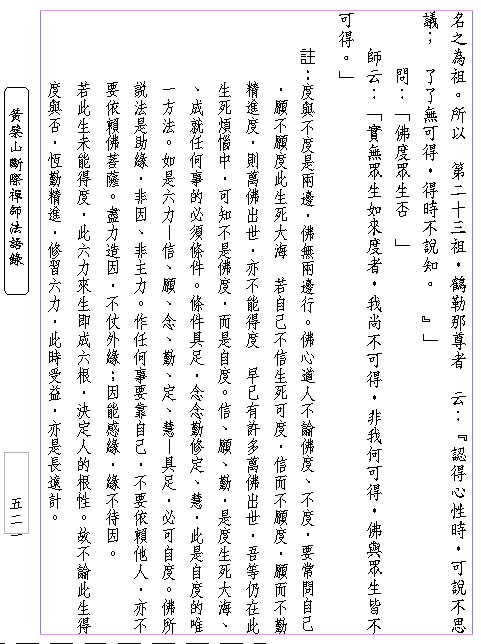 名之為祖。所以　第二十三祖，鶴勒那尊者　云：『認得心性時，可說不思
議；　了了無可得，得時不說知。　』」
問：「佛度眾生否　」
師云：「實無眾生如來度者，我尚不可得，非我何可得，佛與眾生皆不
可得。」
註：度與不度是兩邊，佛無兩邊行。佛心道人不論佛度、不度，要常問自己
，願不願度此生死大海　若自己不信生死可度，信而不願度，願而不勤
精進度，則萬佛出世，亦不能得度　早已有許多萬佛出世，吾等仍在此
生死煩惱中，可知不是佛度，而是自度。信、願、勤，是度生死大海、
、成就任何事的必須條件。條件具足，念念勤修定、慧，此是自度的唯
一方法。如是六力—信、願、念、勤、定、慧—具足，必可自度。佛所
說法是助緣，非因、非主力。作任何事要靠自己，不要依賴他人，亦不
要依賴佛菩薩。盡力造因，不仗外緣；因能感緣，緣不待因。
若此生未能得度，此六力來生即成六根，決定人的根性。故不論此生得
度與否，恆勤精進，修習六力，此時受益，亦是長遠計。
黃檗山斷際禪師法語錄
五二